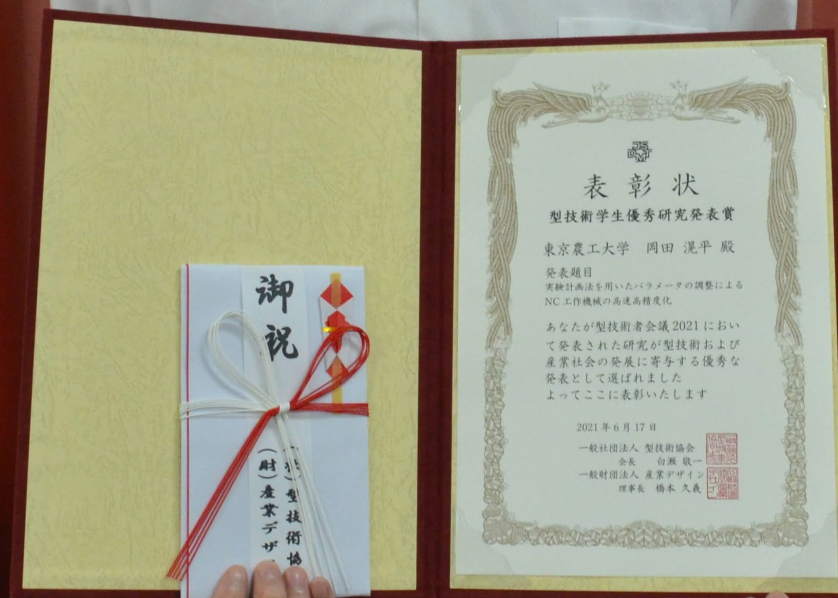 御祝
型技術協
(財)産業デザ
表彰状
型技術学生優秀研究発表賞
東京農工大学 岡田 滉平 殿
発表題目
実験計画法を用いたパラメータの調整による
NC工作機械の高速高精度化
あなたが型技術者会議2021におい
て発表された研究が型技術および
産業社会の発展に寄与する優秀な
発表として選ばれました
よってここに表彰いたします
2021年6月17日
一般社団法人 型技術協会
会長 白瀬 敬一
一般財団法人 産業デザイン
理事長 橋本 久義